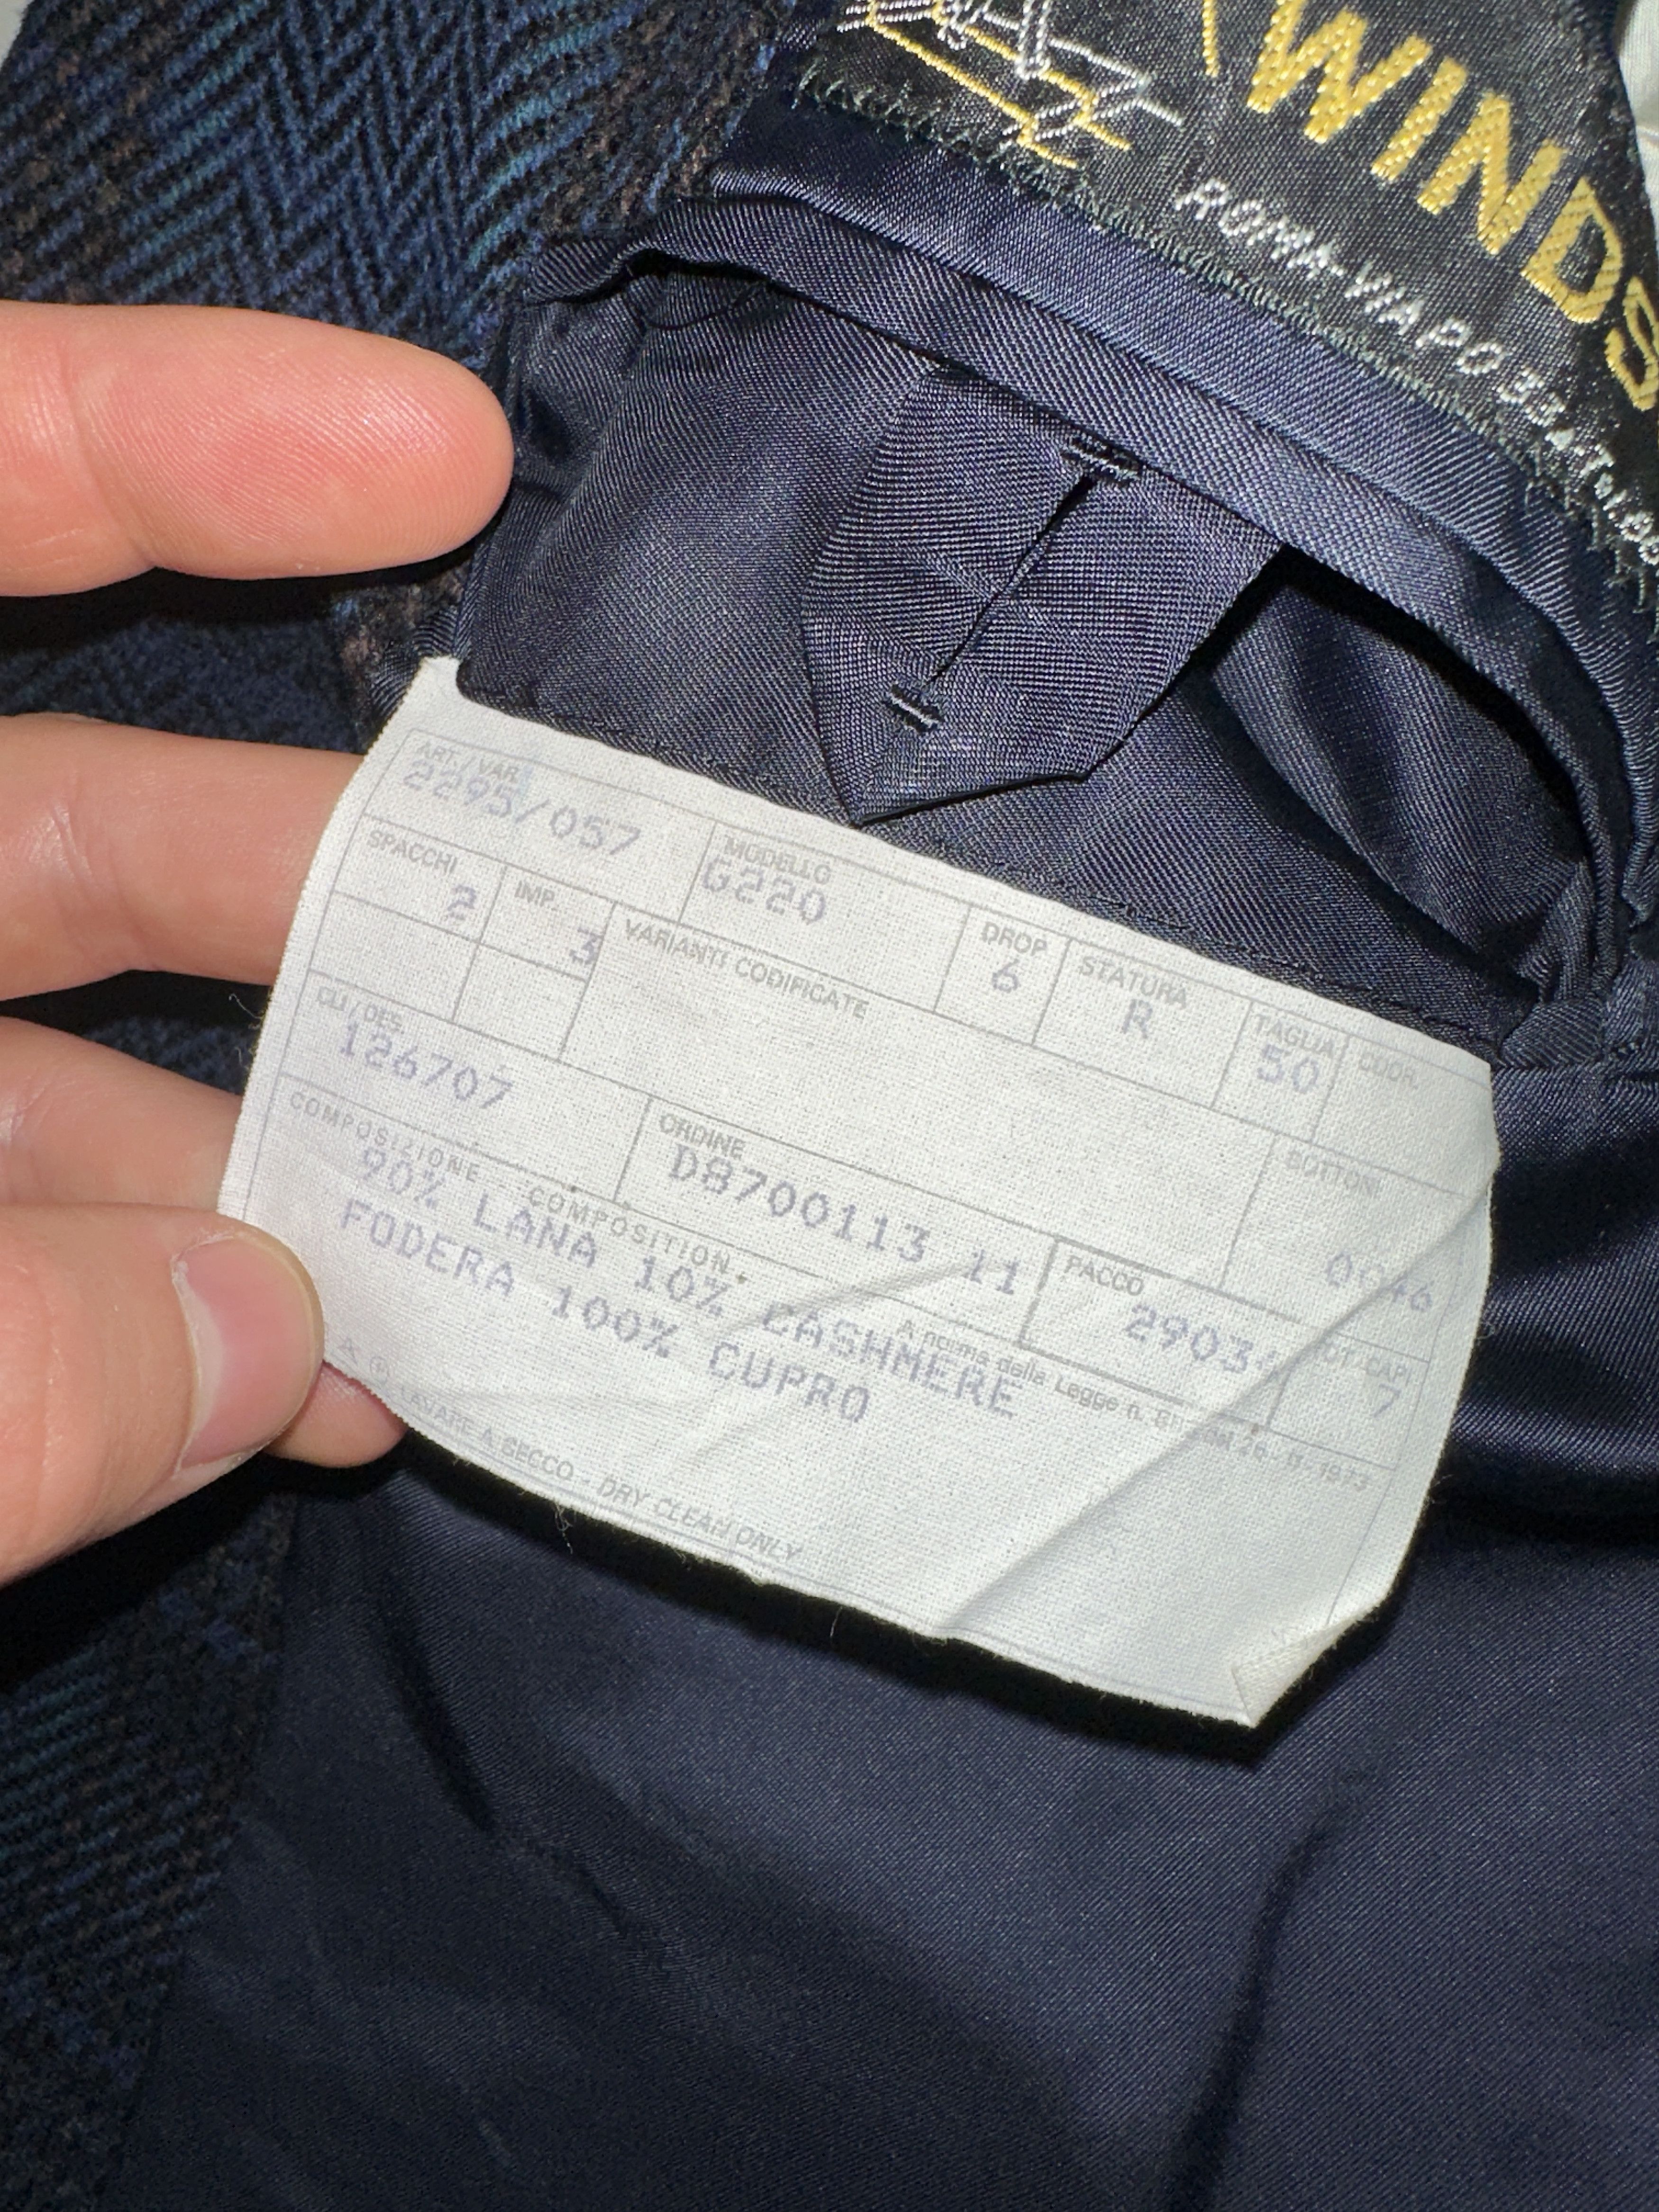 WINDS
ROMA-VIA PO 33
ART./VAR.
2295/057
MODELLO
G220
DROP
6
STATURA
R
TAGLIA
50
COOR.
SPACCHI
2
IMP.
3
VARIANTI CODIFICATE
BOTTONI
CLI/DES.
126707
ORDINE
D8700113 11
PACCO
7
COMPOSIZIONE - COMPOSITION
A norma della Legge n.
90% LANA 10% CASHMERE
FODERA 100% CUPRO
LAVARE A SECCO - DRY CLEAN ONLY